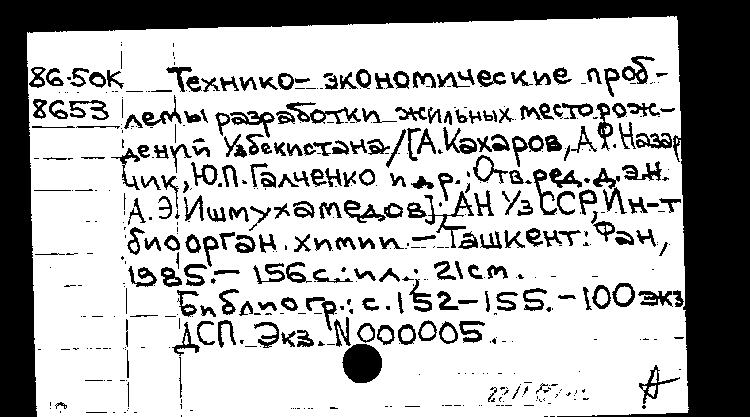 86-50К Технико- экономические проб-
8653 лемы разработки жильных месторож-
дений Узбекистана/[А.Кахаров, А.Ф.Назар
чик, Ю.П.Галченко и др.; Отв.ред. д.э.н.
А.Э.Ишмухамедов]; АН УзССР, Ин-т
биоорган. химии. — Ташкент: Фан,
1985.— 156 с.: ил.; 21 см.
Библиогр.: с. 152—155. — 100 экз
ДСП. Экз. N 000005.